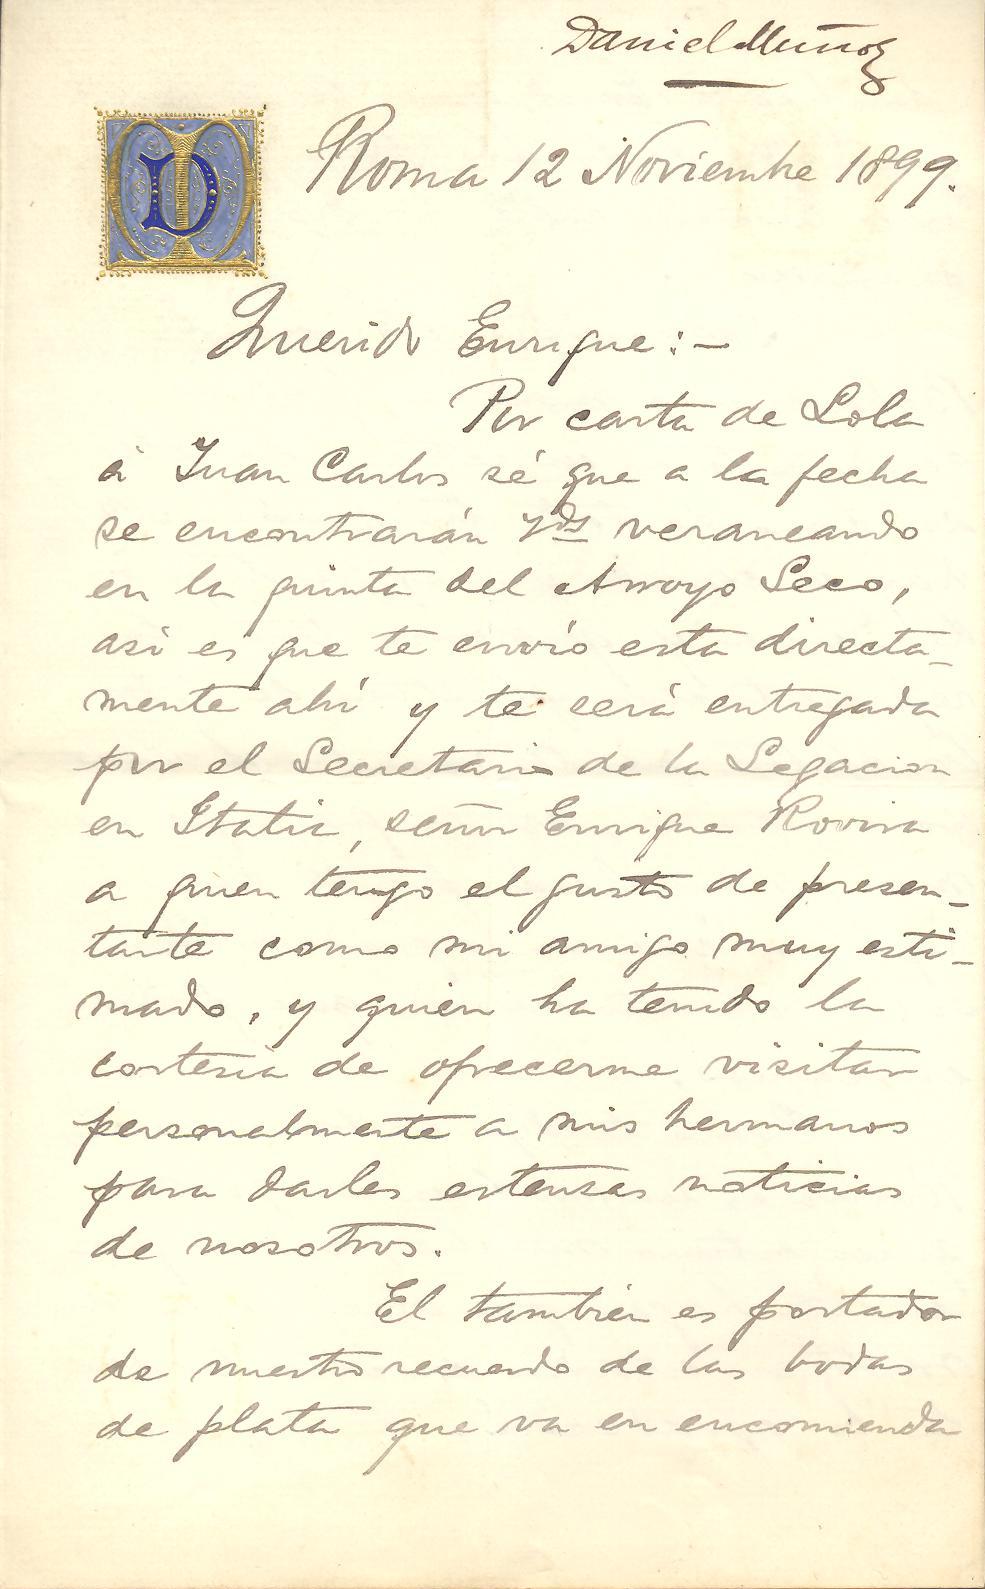 Daniel Muñoz
Roma 12 Noviembre 1899.
Querido Enrique:—
Por carta de Lola
á Juan Carlos sé que a la fecha
se encontrarán Vds veraneando
en la quinta del Arroyo Seco,
asi es que te envío esta directa-
mente ahí y te será entregada
por el Secretario de la Legacion
en Italia, señor Enrique Rovira
a quien tengo el gusto de presen-
tarte como mi amigo muy esti-
mado, y quien ha tenido la
cortesia de ofrecerme visitar
personalmente a mis hermanos
para darles estensas noticias
de nosotros.
El tambien es portador
de nuestro recuerdo de las bodas
de plata que va en encomienda